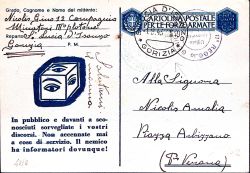 Grado, Cognome e Nome del mittente:
Nicolis Gino 12 Compagnia
Minatori
Reparto S. Lucia D'Isonzo
Gorizia P. M.
In pubblico e davanti a sco-
nosciuti sorvegliate i vostri
discorsi. Non accennate mai
a cose di servizio. Il nemico
ha informatori dovunque!
CARTOLINA POSTALE
PER LE FORZE ARMATE
GORIZIA
Alla Signora
Nicolis Amalia
Piazza Arbizzano
(Pr Verona)